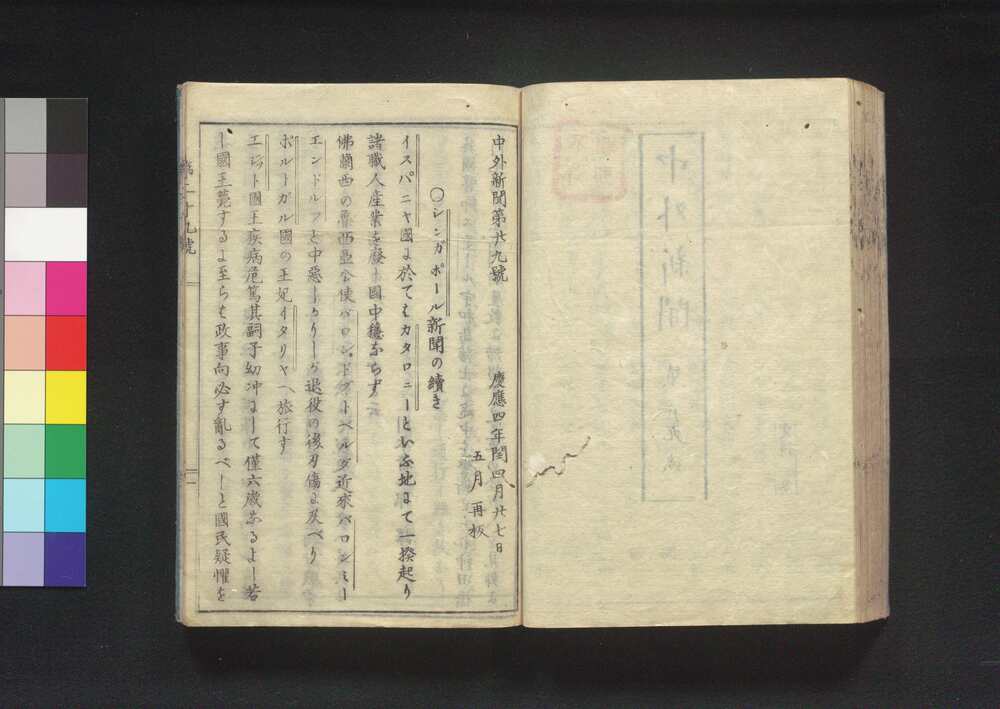 中外新聞第廿九號
慶應四年閏四月廿七日
五月再板
○シンガポール新聞の續き
イスパニヤ國に於てもカタロニーといふ地にて一揆起り
諸職人産業を廢し國中穩ならず云
佛蘭西の魯西亞公使バロンドブーベルグ近來バロンミー
エンドルフと中惡しかりしが退役の後刄傷に及べり
ポルトーガル國の王妃イタリヤへ旅行す
エジト國王疾病危篤其嗣子幼冲にして僅六歳なるよし若
し國王薨するに至らも政事向必す亂るべしと國民疑懼を
第二十九號